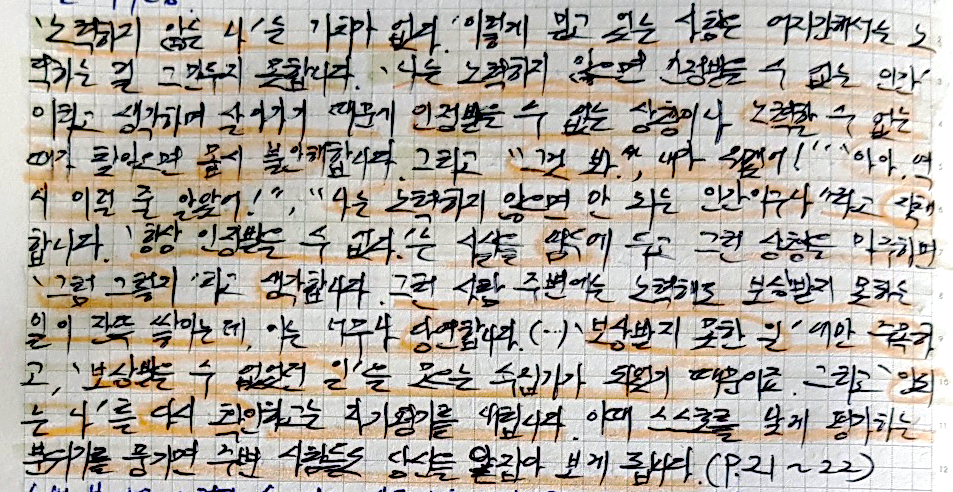 '노력하지 않는 나'는 가치가 없다. 이렇게 믿고 있는 사람은 어지간해서는 노
력하는 걸 그만두지 못합니다. '나는 노력하지 않으면 인정받을 수 없는 인간'
이라고 생각하며 살아가기 때문에 인정받을 수 없는 상황이나 노력할 수 없는
때가 찾아오면 몹시 불안해합니다. 그리고 "그것 봐, 내가 뭐랬어!" "아아, 역
시 이럴 줄 알았어!", "나는 노력하지 않으면 안 되는 인간이구나"라고
합니다. '항상 인정받을 수 없다'는 사실을 염두에 두고 그런 상황을 마주하면
'그럼 그렇지'라고 생각합니다. 그런 사람 주변에는 노력해도 보상받지 못하는
일이 잔뜩 쌓이는데, 이는 너무나 당연합니다. (…) '보상받지 못한 일'에만 주목하
고, '보상받을 수 없었던 일'을 모으는 수집가가 되었기 때문이죠. 그리고
는 나'를 다시 확인하고는 자기평가를 내립니다. 이때 스스로를 낮게 평가하는
분위기를 풍기면 주변 사람들도 당신을 얕잡아 보게 됩니다. (P.21 ~ 22)